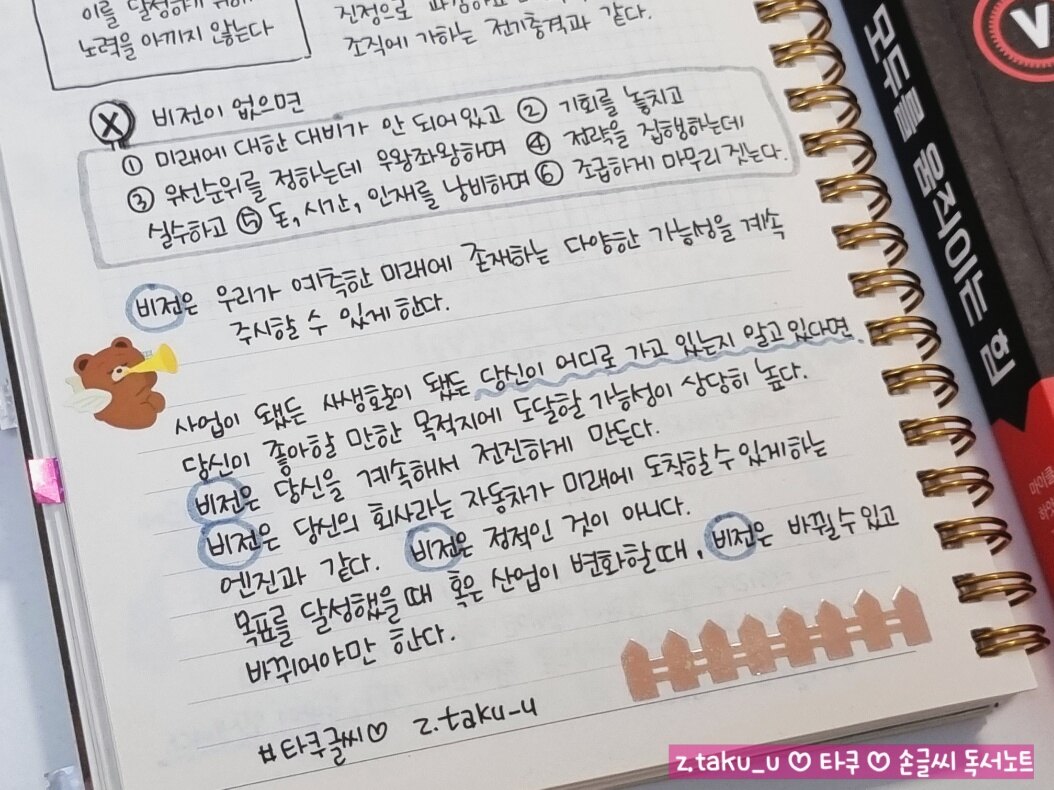 이를 달성하기 위해
노력을 아끼지 않는다
진정으로
조직에 가하는 전기충격과 같다.
X 비전이 없으면
① 미래에 대한 대비가 안 되어있고 ② 기회를 놓치고
③ 우선순위를 정하는데 우왕좌왕하며 ④ 전략을 집행하는데
실수하고 ⑤ 돈, 시간, 인재를 낭비하며 ⑥ 조급하게 마무리 짓는다.
비전은 우리가 예측한 미래에 존재하는 다양한 가능성을 계속
주시할 수 있게 한다.
사업이 됐든 사생활이 됐든 당신이 어디로 가고 있는지 알고 있다면
당신이 좋아할 만한 목적지에 도달할 가능성이 상당히 높다.
비전은 당신을 계속해서 전진하게 만든다.
비전은 당신의 회사라는 자동차가 미래에 도착할 수 있게하는
엔진과 같다. 비전은 정적인 것이 아니다.
목표를 달성했을 때 혹은 산업이 변화할 때, 비전은 바뀔 수 있고
바뀌어야만 한다.
#타쿠글씨♡ z.taku-u
모두를 움직이는 힘
V
마이클
하이
z.taku_u ♡ 타쿠 ♡ 손글씨 독서노트